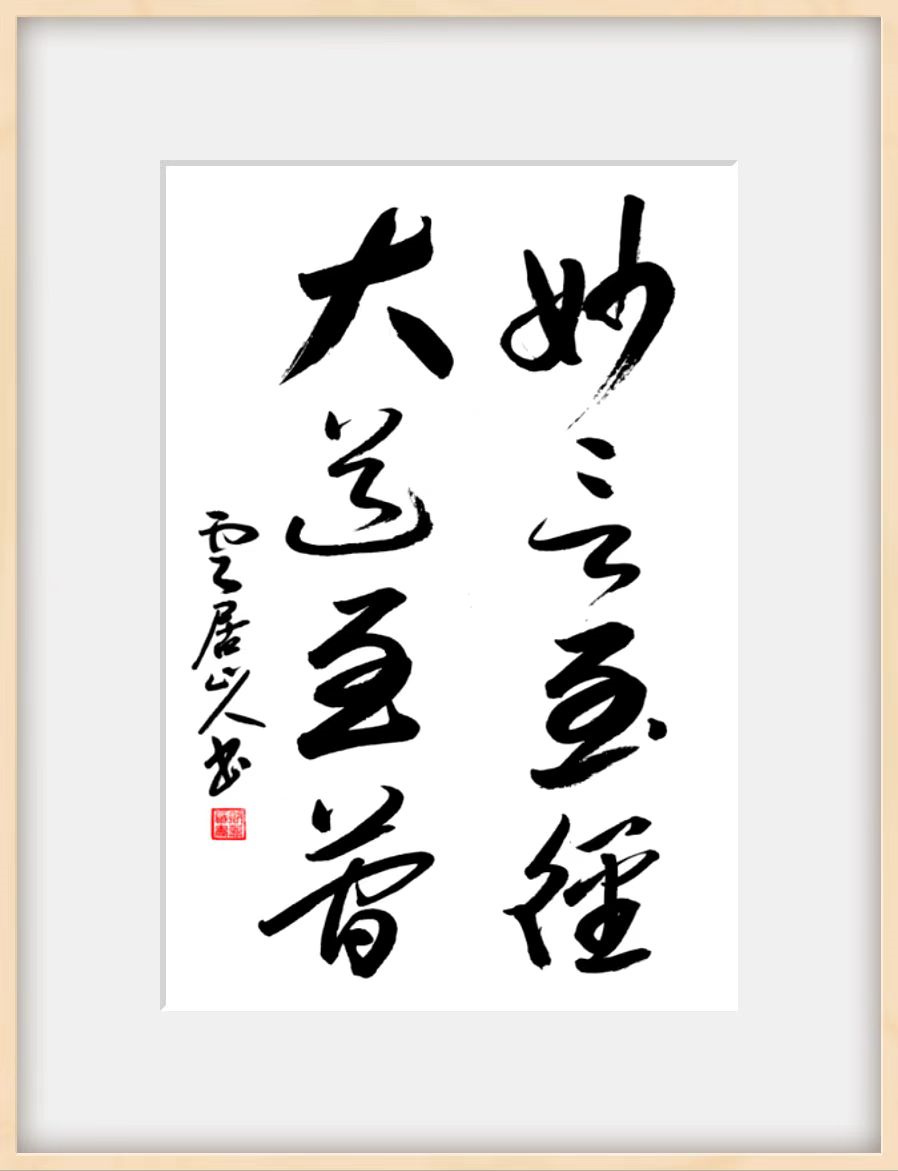 妙言至徑
大道至簡
雲居山人書